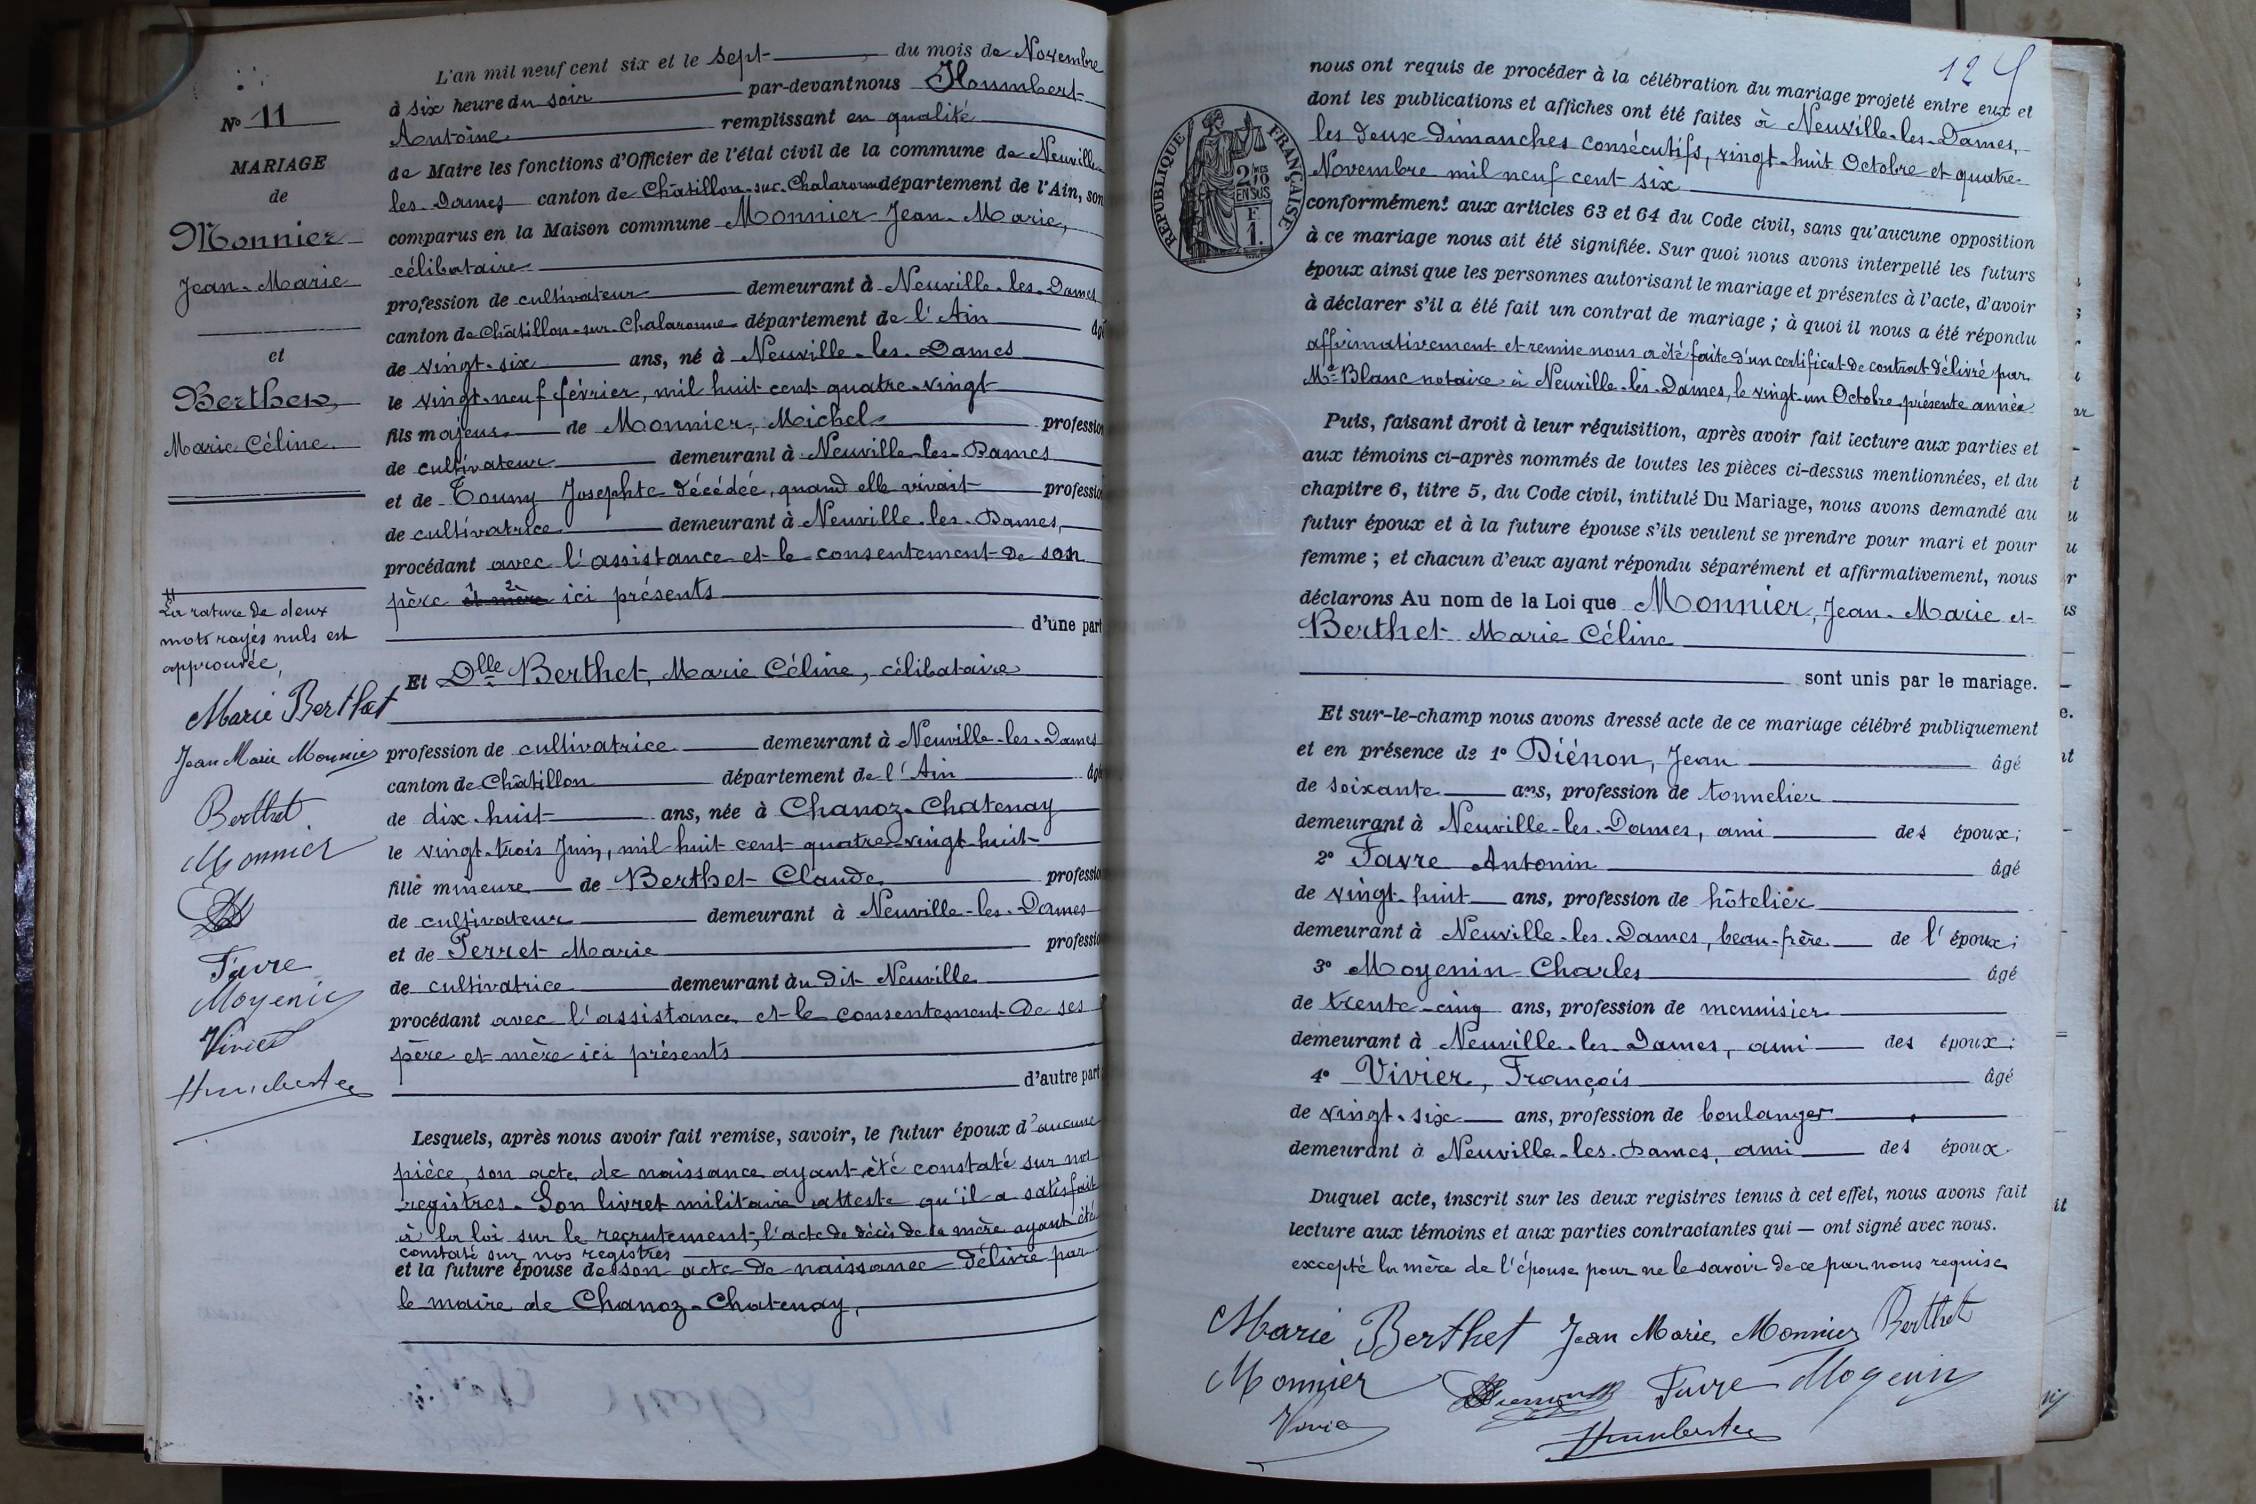 N° 11
MARIAGE
de
Monnier
Jean-Marie
et
Berthet,
Marie Céline
La rature de deux
mots rayés nuls est
approuvée,
Marie Berthet
Jean Marie Monnier
Berthet
Monnier
Favre
Moyenin
Vivier
Humbert
L'an mil neuf cent six et le sept du mois de Novembre
à six heure du soir par-devant nous Humbert
Antoine remplissant en qualité
de Maire les fonctions d'Officier de l'état civil de la commune de Neuville
les Dames canton de Châtillon-sur-Chalaronne département de l'Ain, son
comparus en la Maison commune Monnier Jean-Marie,
célibataire
profession de cultivateur demeurant à Neuville-les-Dames
canton de Châtillon-sur-Chalaronne département de l'Ain âgé
de vingt-six ans, né à Neuville-les-Dames
le vingt-neuf février, mil huit cent quatre-vingt
fils majeur de Monnier, Michel profession
de cultivateur demeurant à Neuville-les-Dames
et de Touny Josephte décédée, quand elle vivait profession
de cultivatrice demeurant à Neuville-les-Dames,
procédant avec l'assistance et le consentement de son
père et mère ici présents
d'une part
Et Dlle Berthet, Marie Céline, célibataire
profession de cultivatrice demeurant à Neuville-les-Dames
canton de Châtillon département de l'Ain âgé
de dix-huit ans, née à Chanoz-Chatenay
le vingt-trois Juin, mil huit cent quatre-vingt-huit
fille mineure de Berthet Claude profession
de cultivateur demeurant à Neuville-les-Dames
et de Perret Marie profession
de cultivatrice demeurant àu dit Neuville
procédant avec l'assistance et le consentement de ses
père et mère ici présents
d'autre part
Lesquels, après nous avoir fait remise, savoir, le futur époux d'aucune
pièce, son acte de naissance ayant été constaté sur nos
registres. Son livret militaire atteste qu'il a satisfait
à la loi sur le recrutement, l'acte de décès de sa mère ayant été
constaté sur nos registres
et la future épouse de son acte de naissance délivré par
le maire de Chanoz-Chatenay,
RÉPUBLIQUE FRANÇAISE
2/10
EN SUS
F.
1.
nous ont requis de procéder à la célébration du mariage projeté entre eux et
dont les publications et affiches ont été faites à Neuville-les-Dames,
les deux dimanches consécutifs, vingt-huit Octobre et quatre
Novembre mil neuf cent six
conformément aux articles 63 et 64 du Code civil, sans qu'aucune opposition
à ce mariage nous ait été signifiée. Sur quoi nous avons interpellé les futurs
époux ainsi que les personnes autorisant le mariage et présentes à l'acte, d'avoir
à déclarer s'il a été fait un contrat de mariage ; à quoi il nous a été répondu
affirmativement et remise nous a été faite d'un certificat de contrat délivré par
Me Blanc notaire à Neuville-les-Dames, le vingt-un Octobre présente année
Puis, faisant droit à leur réquisition, après avoir fait lecture aux parties et
aux témoins ci-après nommés de toutes les pièces ci-dessus mentionnées, et du
chapitre 6, titre 5, du Code civil, intitulé Du Mariage, nous avons demandé au
futur époux et à la future épouse s'ils veulent se prendre pour mari et pour
femme ; et chacun d'eux ayant répondu séparément et affirmativement, nous
déclarons Au nom de la Loi que Monnier, Jean-Marie et
Berthet Marie Céline
sont unis par le mariage.
Et sur-le-champ nous avons dressé acte de ce mariage célébré publiquement
et en présence de 1° Diénon, Jean âgé
de soixante ans, profession de tonnelier
demeurant à Neuville-les-Dames, ami des époux ;
2° Favre Antonin âgé
de vingt-huit ans, profession de hôtelier
demeurant à Neuville-les-Dames, beau-frère de l'époux ;
3° Moyenin Charles âgé
de trente-cinq ans, profession de menuisier
demeurant à Neuville-les-Dames, ami des époux ;
4° Vivier, François âgé
de vingt-six ans, profession de boulanger
demeurant à Neuville-les-Dames, ami des époux.
Duquel acte, inscrit sur les deux registres tenus à cet effet, nous avons fait
lecture aux témoins et aux parties contractantes qui — ont signé avec nous.
excepté la mère de l'épouse pour ne le savoir de ce par nous requise
Marie Berthet Jean Marie Monnier Berthet
Monnier Favre Moyenin
Vivier
Humbert